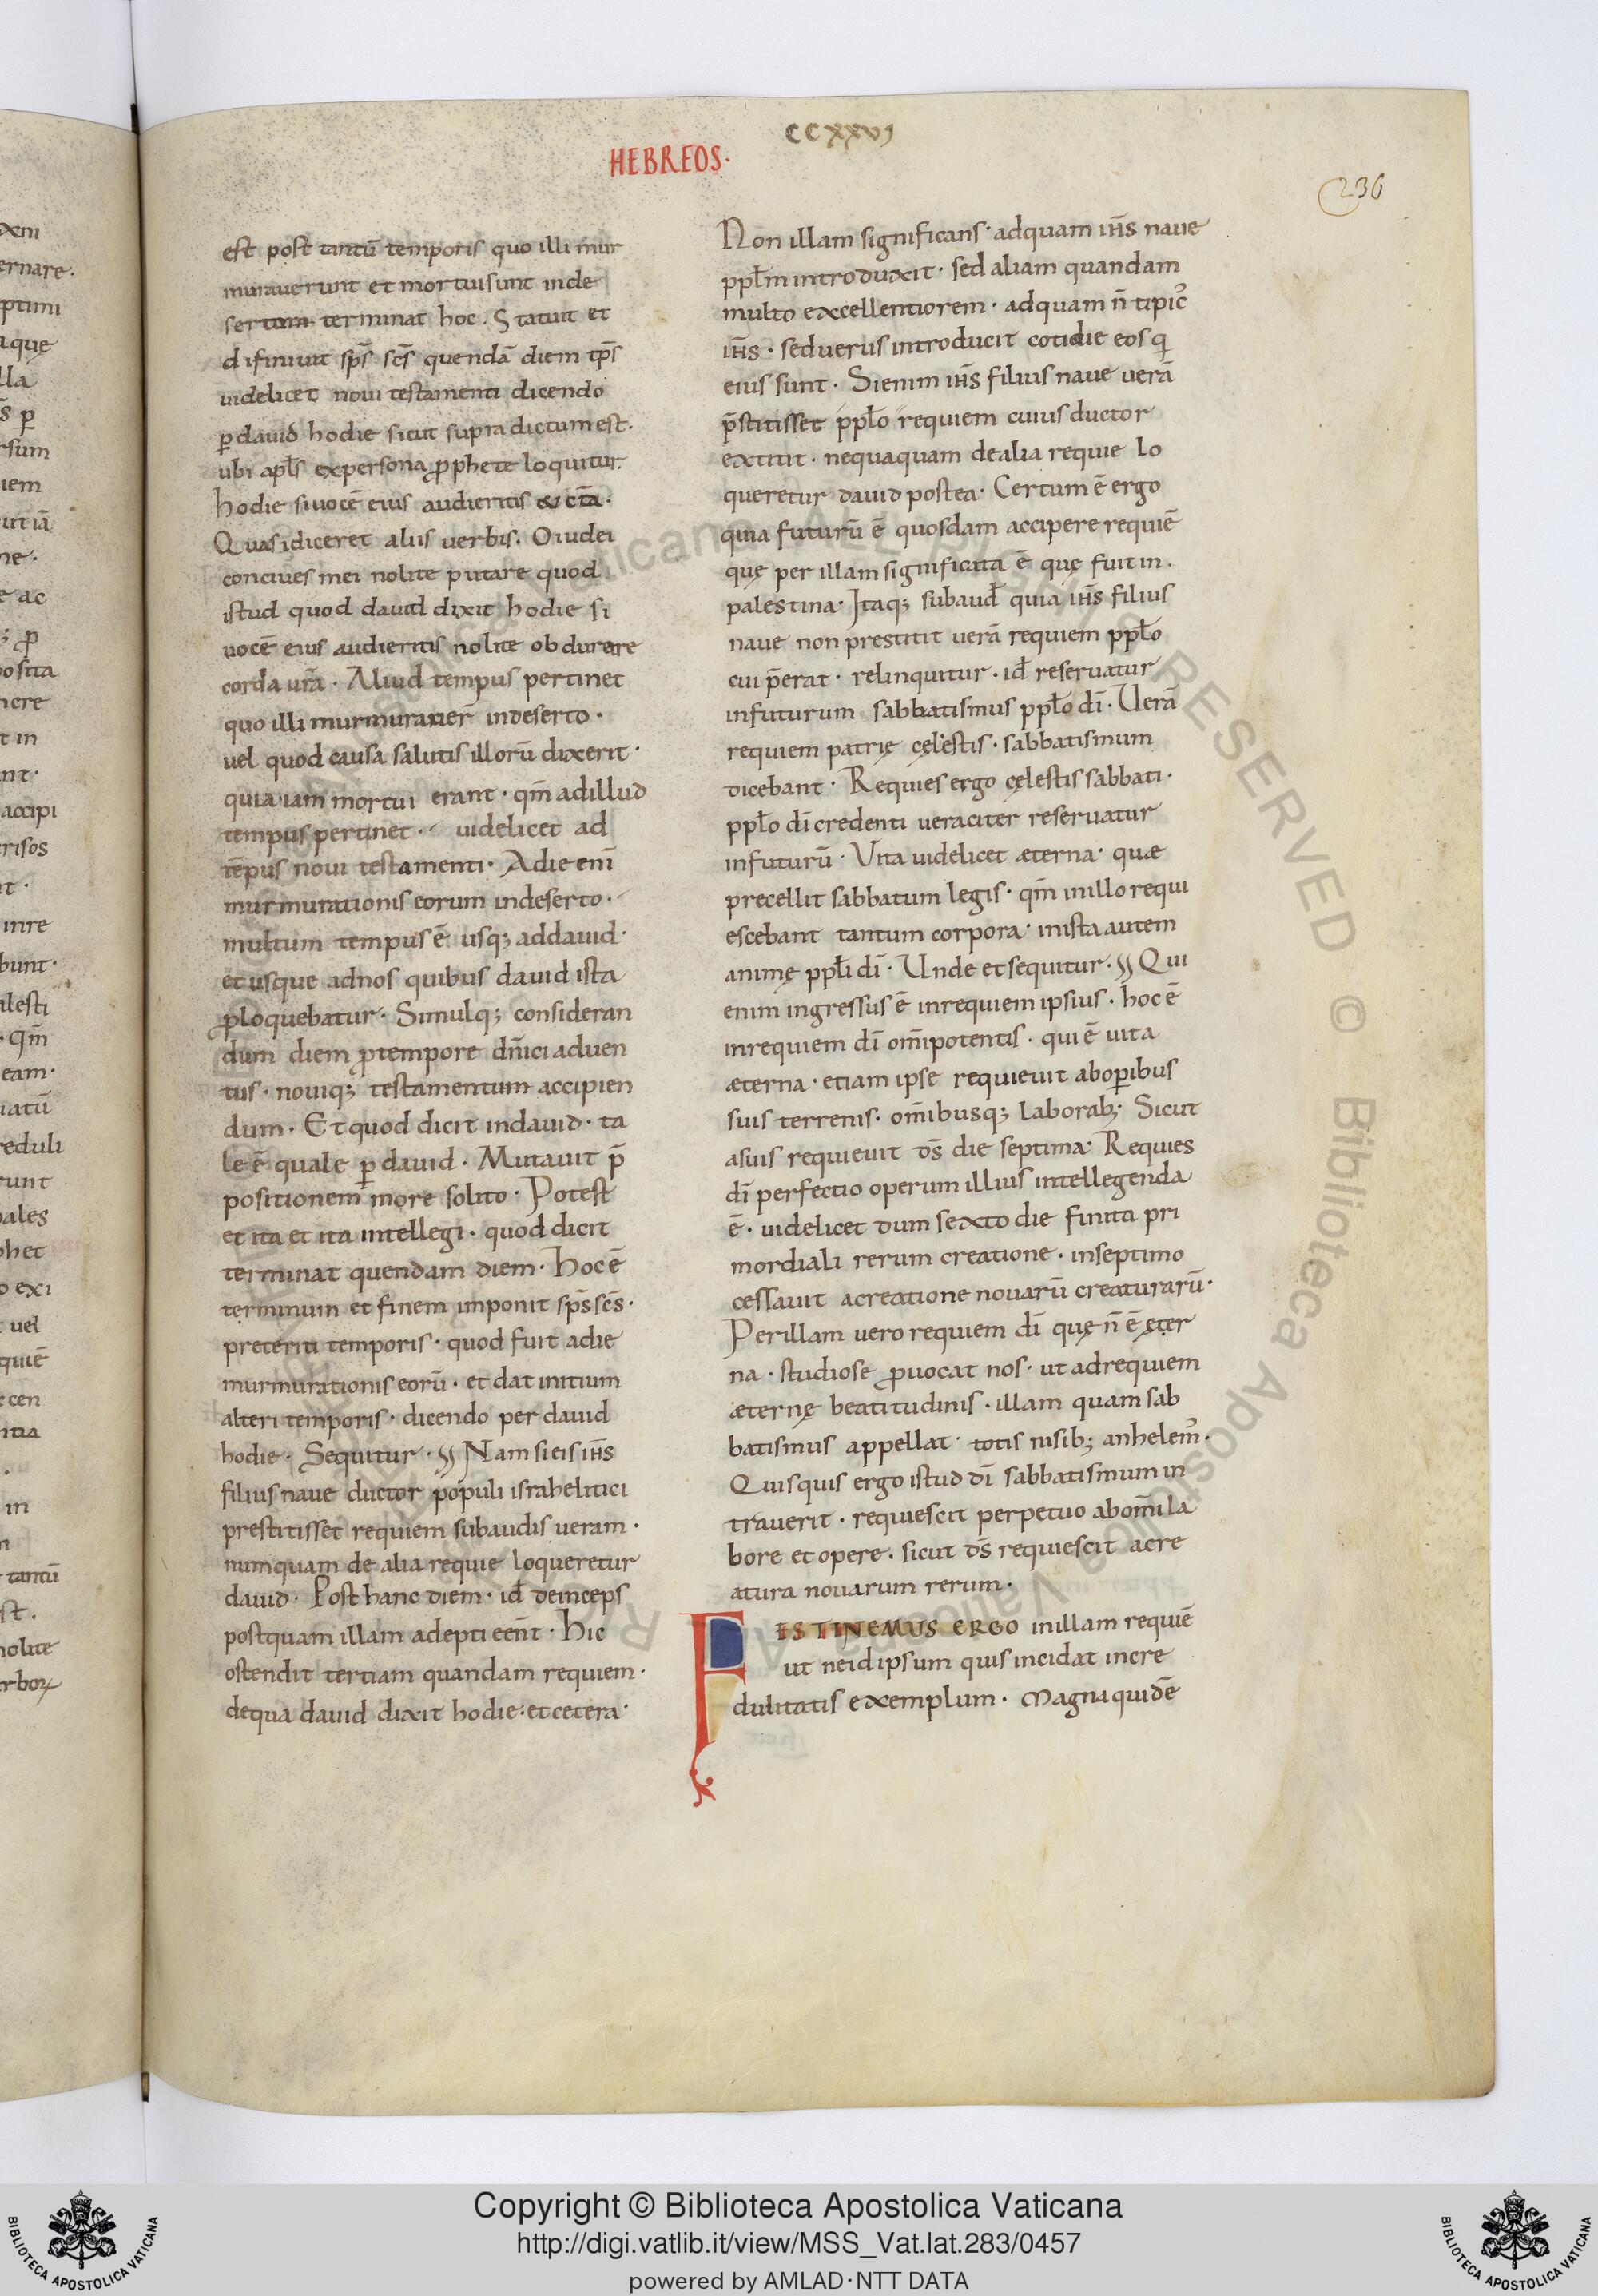 CCXXVI
HEBREOS·
236
est post tantū temporis quo illi mur
murauerunt et mortui sunt in de
sertum terminat hoc. Statuit et
difiniuit sp̄s sc̄s quendā diem tp̄s
uidelicet noui testamenti dicendo
ꝑ dauid hodie sicut supra dictum est.
ubi apl̄s ex persona ꝓphete loquitur.
hodie si uocē eius audieritis & ct̄a·
Quasi diceret aliis uerbis. O iudei
conciues mei nolite putare quod
istud quod dauid dixit hodie si
uocē eius audieritis nolite obdurare
corda ur̄a· Aliud tempus pertinet
quo illi murmurauer̄ in deserto·
uel quod causa salutis illorū dixerit·
quia iam mortui erant· qm̄ ad illud
tempus pertinet· uidelicet ad
tēpus noui testamenti· A die enī
murmurationis eorum in deserto·
multum tempus ē usq; ad dauid·
et usque ad nos quibus dauid ista
ꝓloquebatur· Simulq; consideran
dum diem ꝓ tempore dn̄ici aduen
tus· nouiq; testamentum accipien
dum· Et quod dicit in dauid· ta
le ē quale ꝑ dauid· Mutauit p̄
positionem more solito· Potest
et ita et ita intellegi· quod dicit
terminat quendam diem· Hoc ē
terminum et finem imponit sp̄s sc̄s·
preteriti temporis· quod fuit a die
murmurationis eorū· et dat initium
alteri temporis· dicendo per dauid
hodie· Sequitur· Nam si eis ih̄s
filius naue ductor populi israhelitici
prestitisset requiem subaudis ueram·
numquam de alia requie loqueretur
dauid· Post hanc diem· id̄ deinceps
postquam illam adepti eēnt· Hic
ostendit tertiam quandam requiem·
de qua dauid dixit hodie· et cetera·
Non illam significans· ad quam ih̄s naue
ppl̄m introduxit· sed aliam quandam
multo excellentiorem· ad quam n̄ tipic᾽
ih̄s· sed uerus introducit cotidie eos q̄
eius sunt· Si enim ih̄s filius naue uerā
p̄stitisset ppl̄o requiem cuius ductor
extitit· nequaquam de alia requie lo
queretur dauid postea· Certum ē ergo
quia futurū ē quosdam accipere requiē
quę per illam significata ē quę fuit in·
palestina· Itaq; subaud̄ quia ih̄s filius
naue non prestitit uerā requiem ppl̄o
cui p̄erat· relinquitur· id̄ reseruatur
in futurum sabbatismus ppl̄o dī· Uerā
requiem patrię cęlestis· sabbatismum
dicebant· Requies ergo cęlestis sabbati·
ppl̄o dī credenti ueraciter reseruatur
in futurū· Vita uidelicet æterna· quæ
precellit sabbatum legis· qm̄ in illo requi
escebant tantum corpora· in ista autem
animę ppl̄i dī· Unde et sequitur· Qui
enim ingressus ē in requiem ipsius· hoc ē
in requiem dī om̄ipotentis· qui ē uita
æterna· etiam ipse requieuit ab oꝑibus
suis terrenis· om̄ibusq; laborab;· Sicut
a suis requieuit ds̄ die septima· Requies
dī perfectio operum illius intellegenda
ē· uidelicet dum sexto die finita pri
mordiali rerum creatione· in septimo
cessauit a creatione nouarū creaturarū·
Per illam uero requiem dī quę n̄ ē ęter
na· studiose ꝓuocat nos· ut ad requiem
æternę beatitudinis· illam quam sab
batismus appellat· totis nisib; anhelem᾽·
Quisquis ergo istud dī sabbatismum in
trauerit· requiescit perpetuo ab om̄i la
bore et opere· sicut ds̄ requiescit a cre
atura nouarum rerum·
FESTINEMUS ERGO in illam requiē
ut ne id ipsum quis incidat incre
dulitatis exemplum· Magna quidē
Copyright © Biblioteca Apostolica Vaticana
http://digi.vatlib.it/view/MSS_Vat.lat.283/0457
powered by AMLAD·NTT DATA